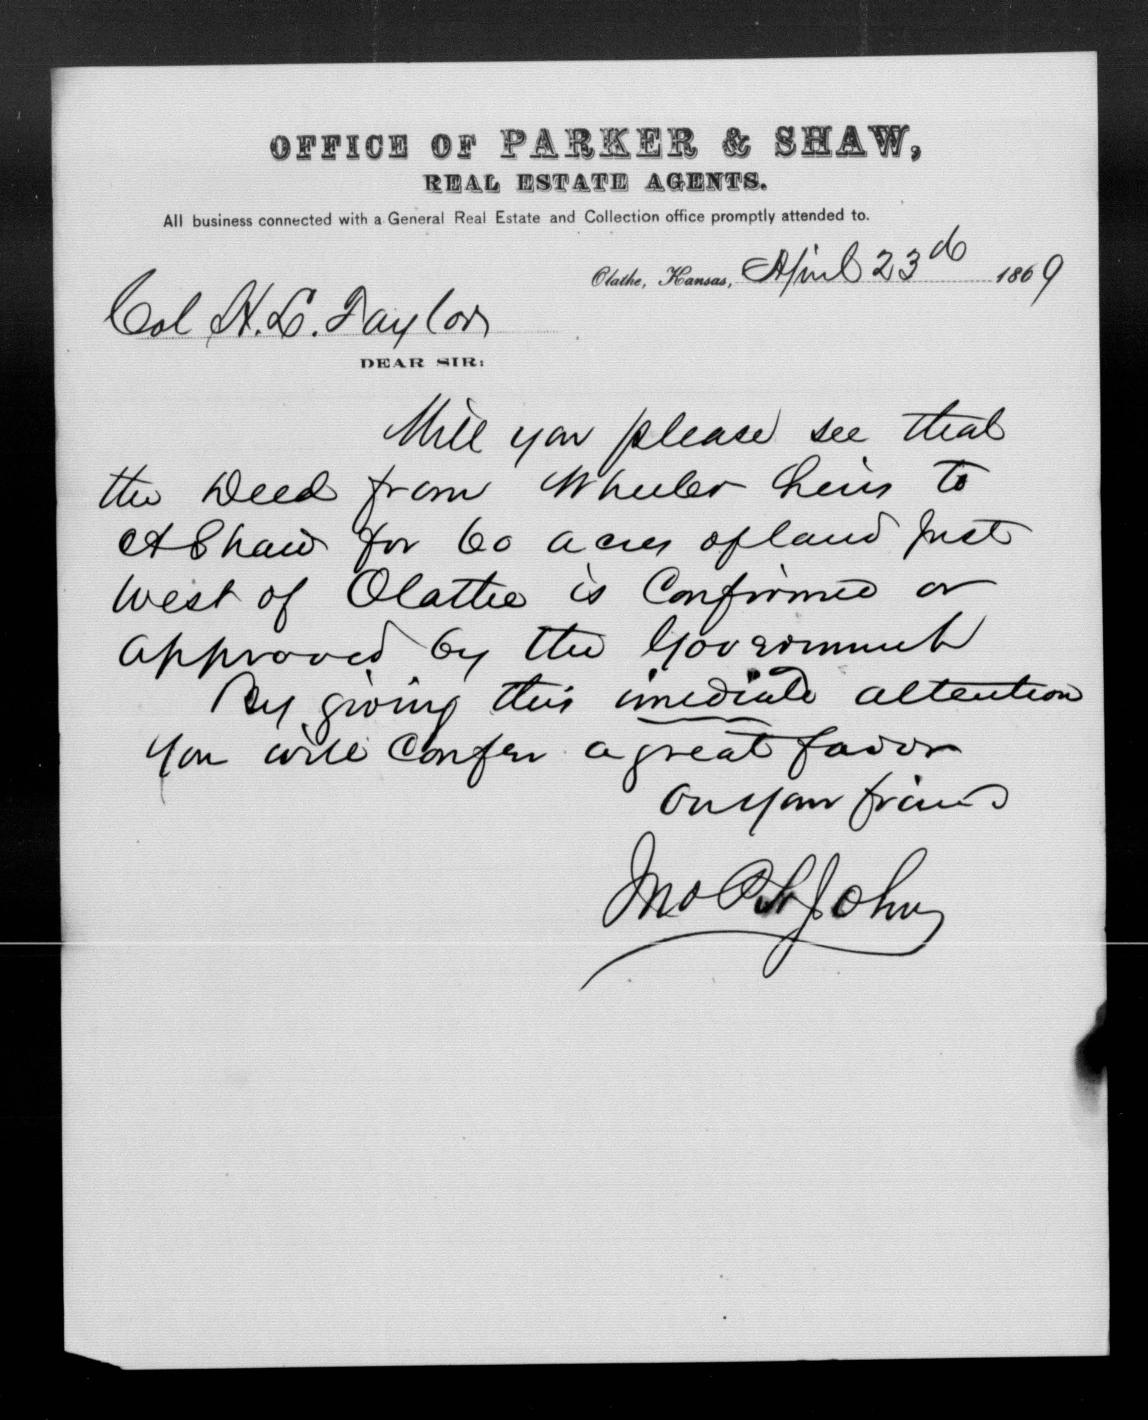 OFFICE OF PARKER & SHAW,
REAL ESTATE AGENTS.
All business connected with a General Real Estate and Collection office promptly attended to.
Olathe, Kansas, April 23d 1869
Col H. L. Taylor
DEAR SIR:
Will you please see that
the Deed from Wheeler heirs to
A Shaw for 60 acres of land Just
West of Olathe is Confirmed or
approved by the Government
By giving this imediate attention
You will Confer a great favor
on your friend
Jno P St John